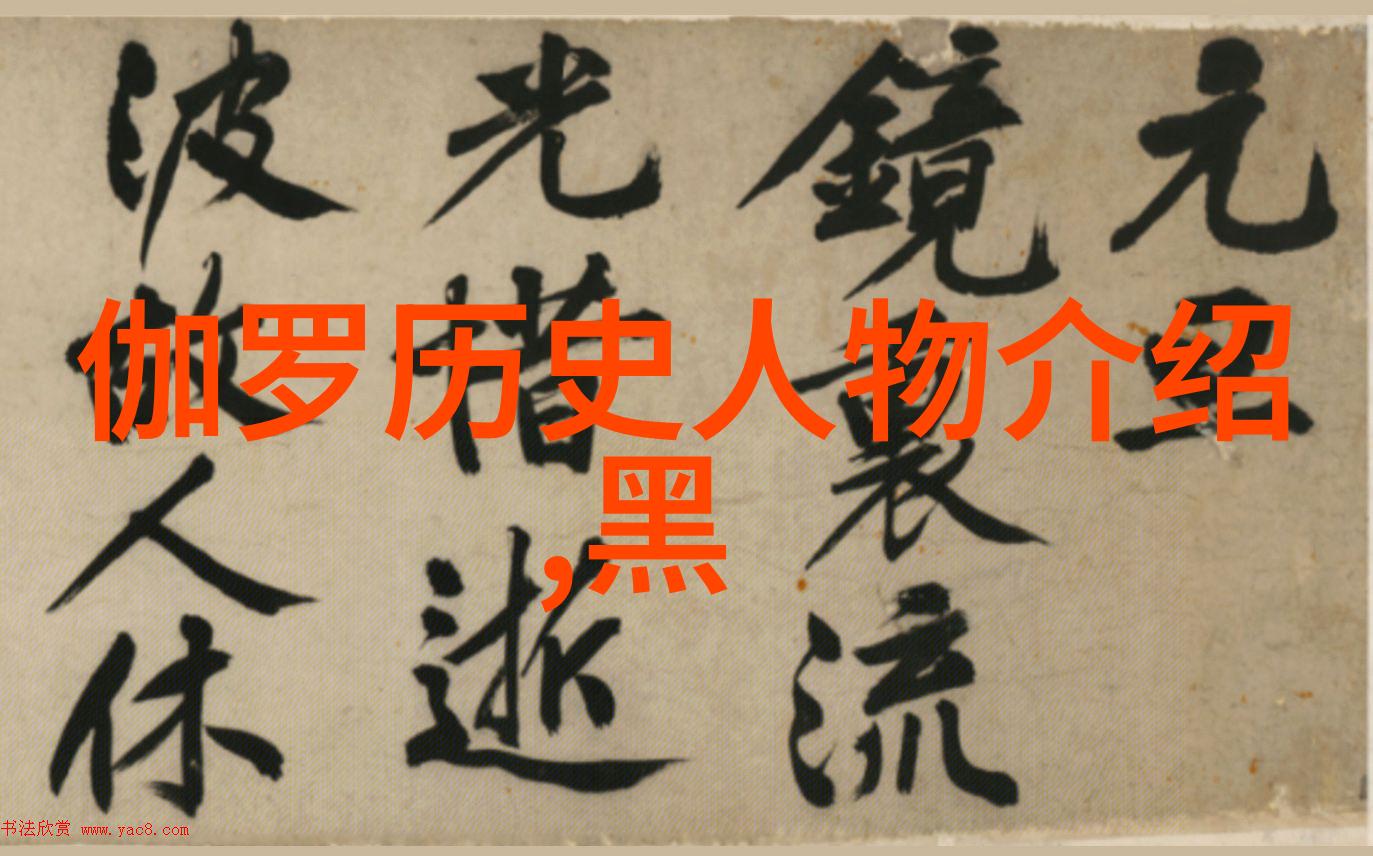 伽罗历史人物介绍
,黑
元
鏡裏流
光惜逝
波故人休
书法欣赏 www.yac8.com